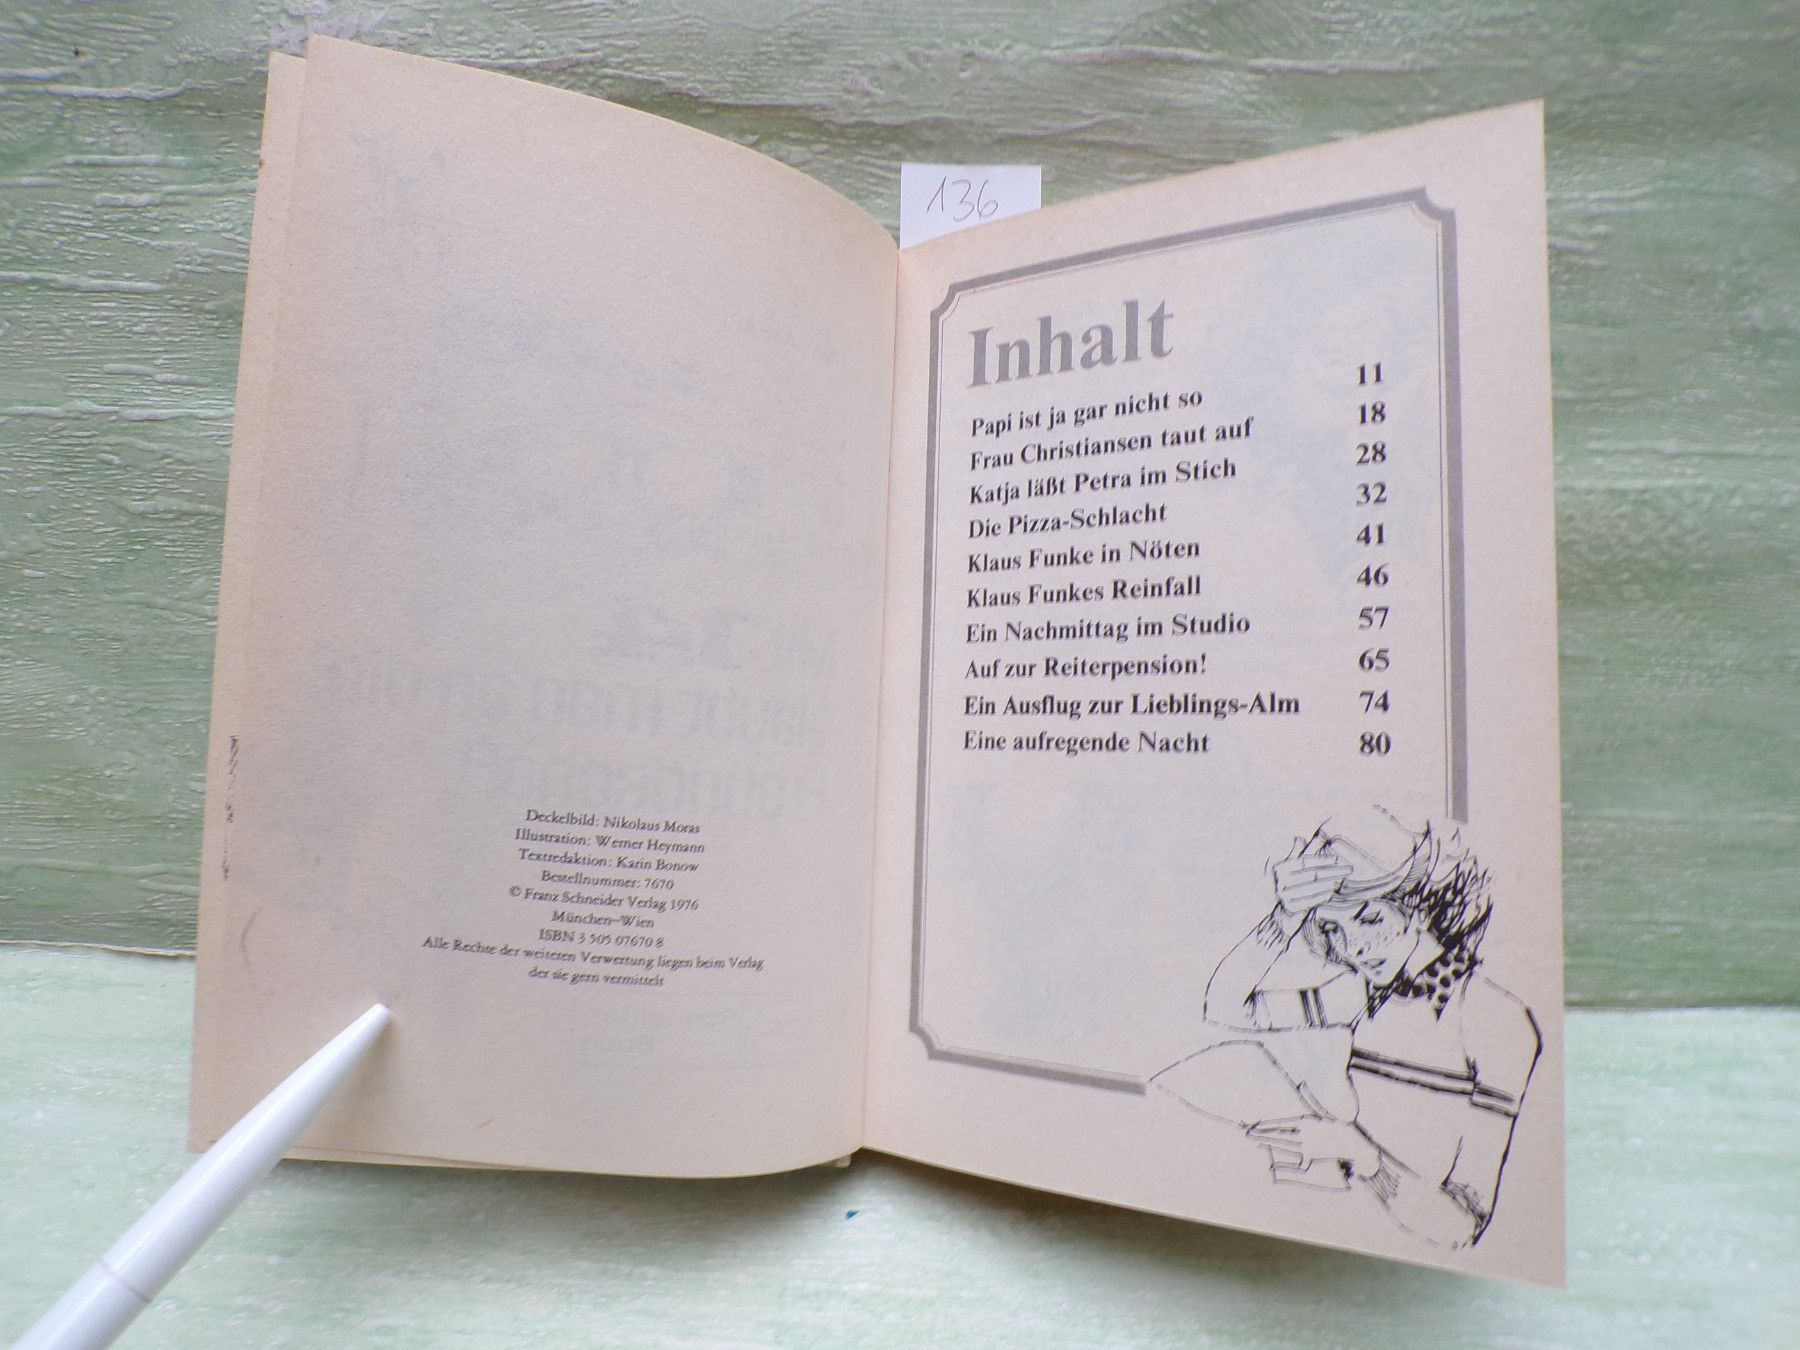 136
Deckelbild: Nikolaus Moras
Illustration: Werner Heymann
Textredaktion: Karin Bonow
Bestellnummer: 7670
© Franz Schneider Verlag 1976
München–Wien
ISBN 3 505 07670 8
Alle Rechte der weiteren Verwertung liegen beim Verlag
der sie gern vermittelt
Inhalt
Papi ist ja gar nicht so 11
Frau Christiansen taut auf 18
Katja läßt Petra im Stich 28
Die Pizza-Schlacht 32
Klaus Funke in Nöten 41
Klaus Funkes Reinfall 46
Ein Nachmittag im Studio 57
Auf zur Reiterpension! 65
Ein Ausflug zur Lieblings-Alm 74
Eine aufregende Nacht 80